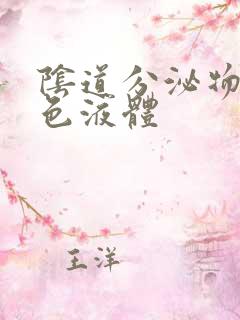 陰道分泌物
色液體
王洋